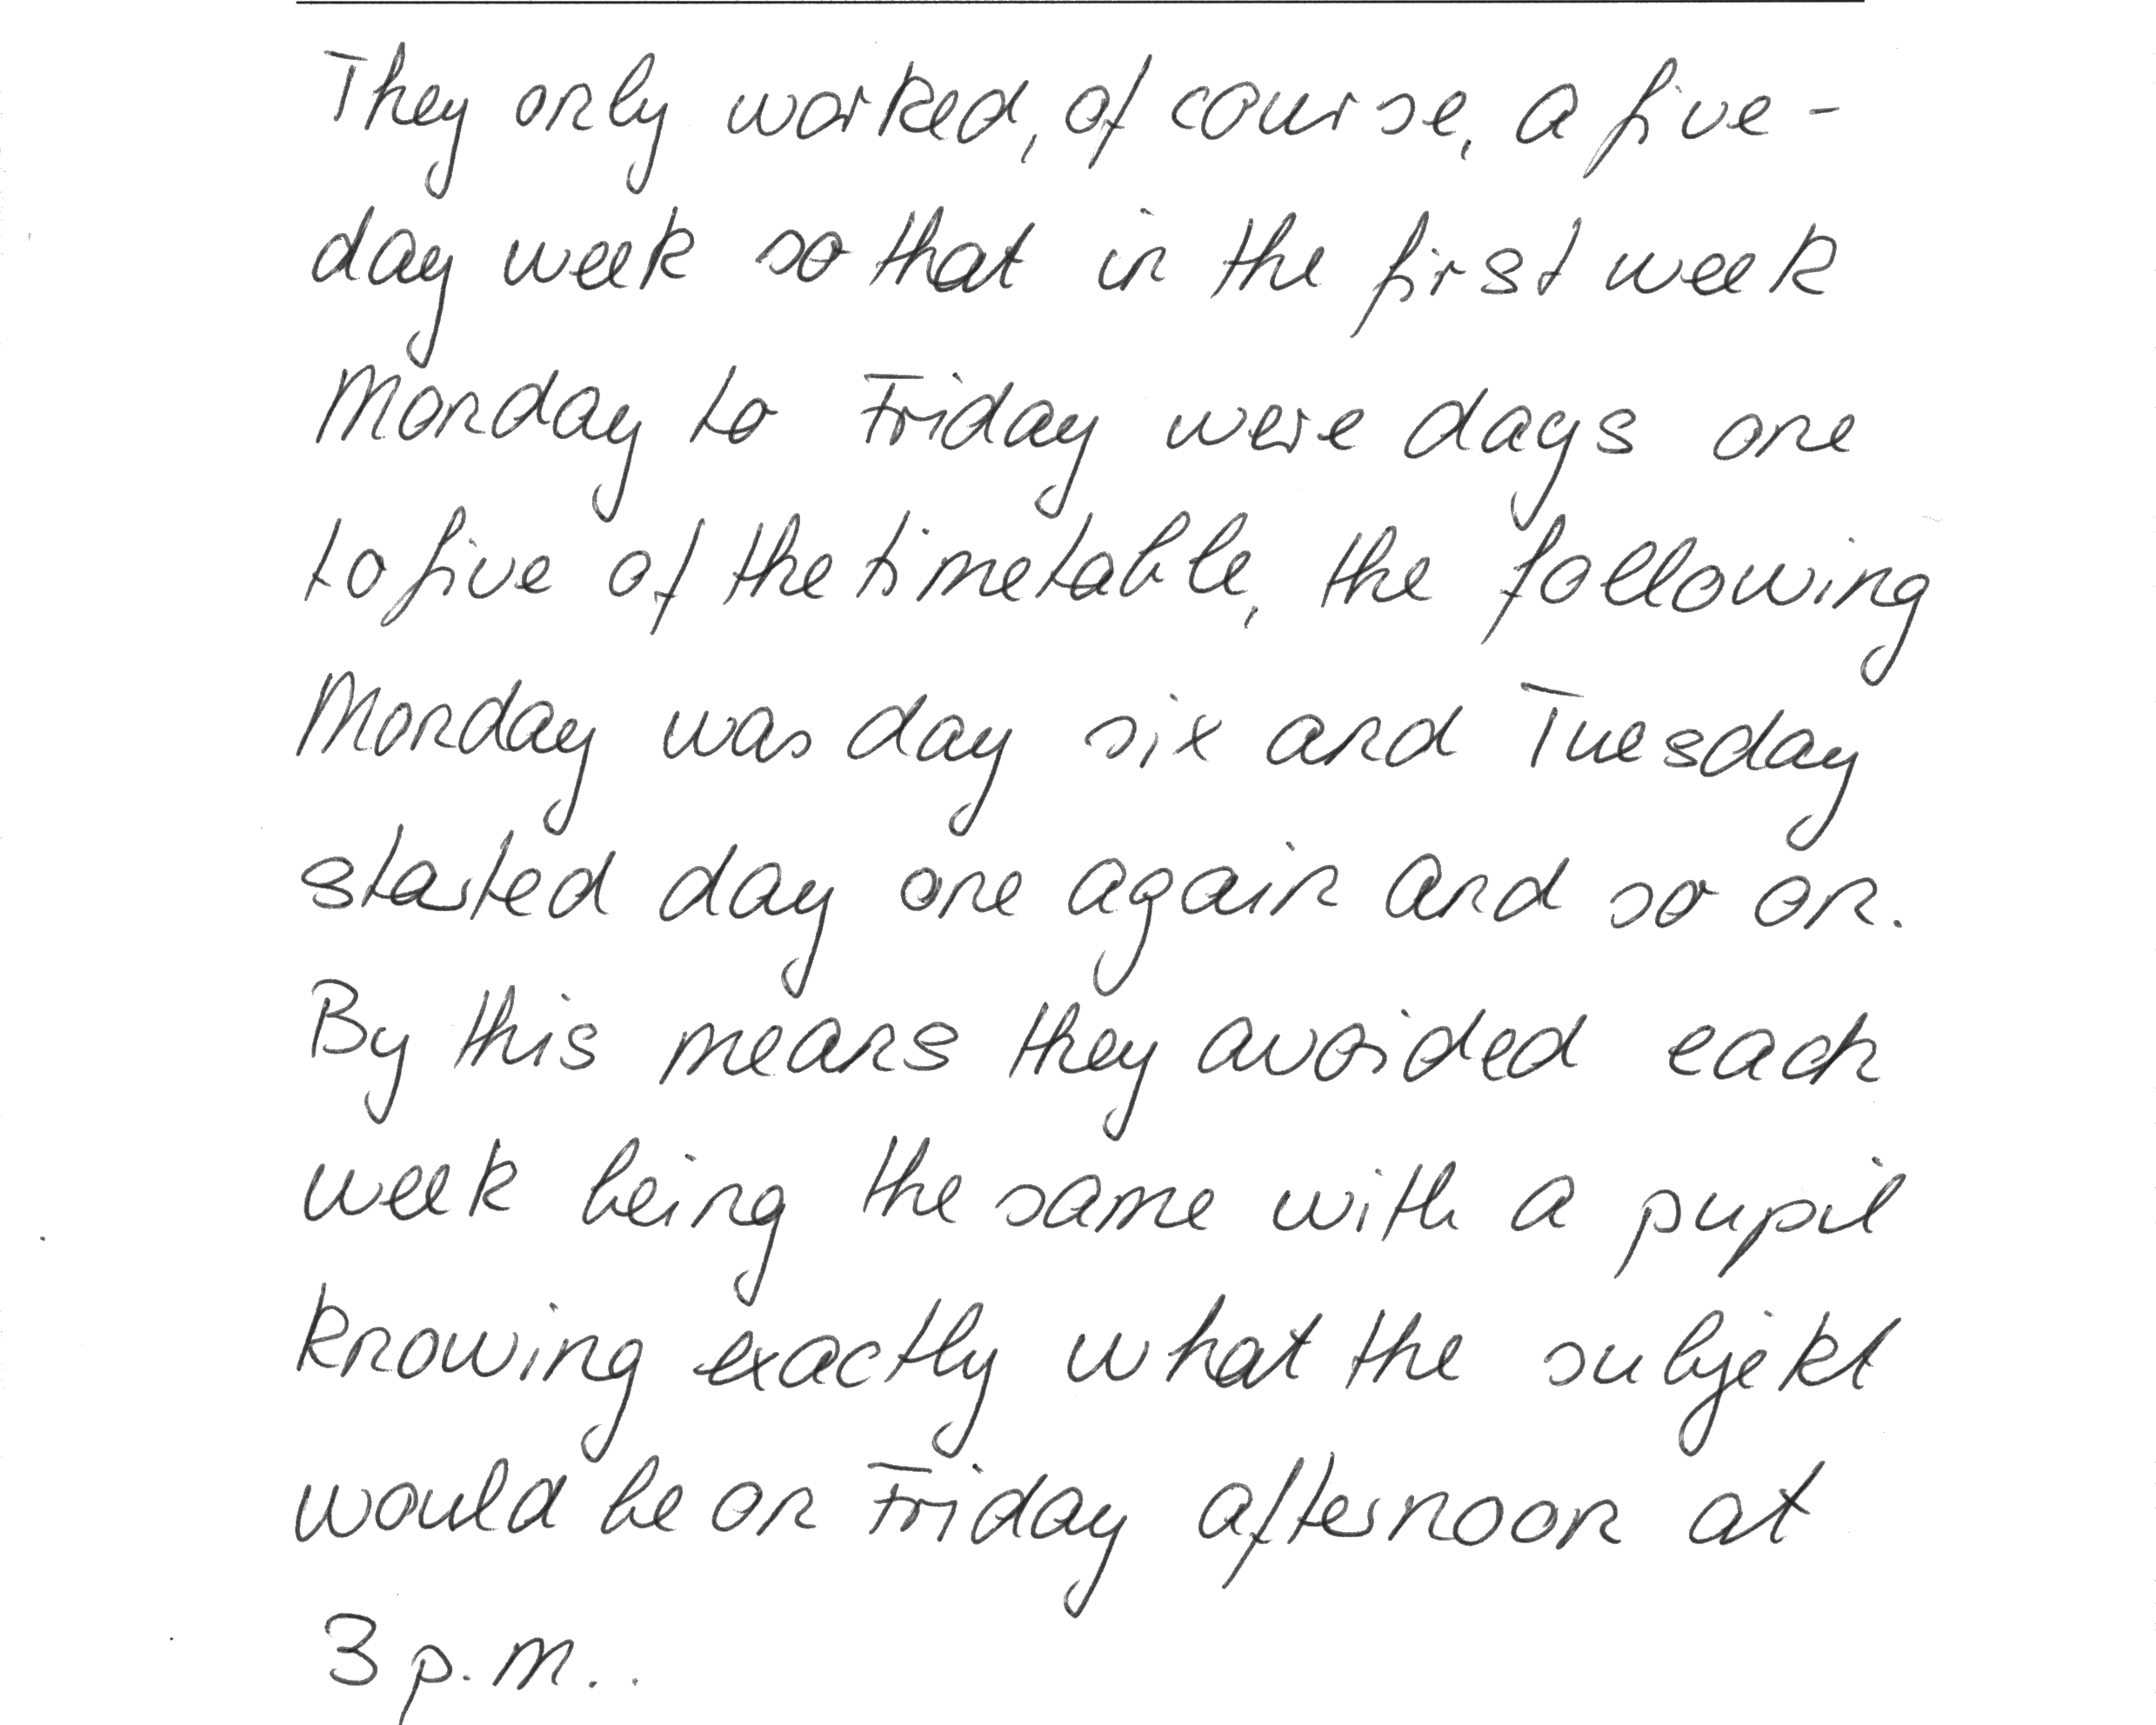 They only worked, of course, a five -
day week so that in the first week
Monday to Friday were days one
to five of the timetable, the following
Monday was day six and Tuesday
started day one again and so on.
By this means they avoided each
week being the same with a pupil
knowing exactly what the subjekt
would be on Friday afternoon at
3 p.m..